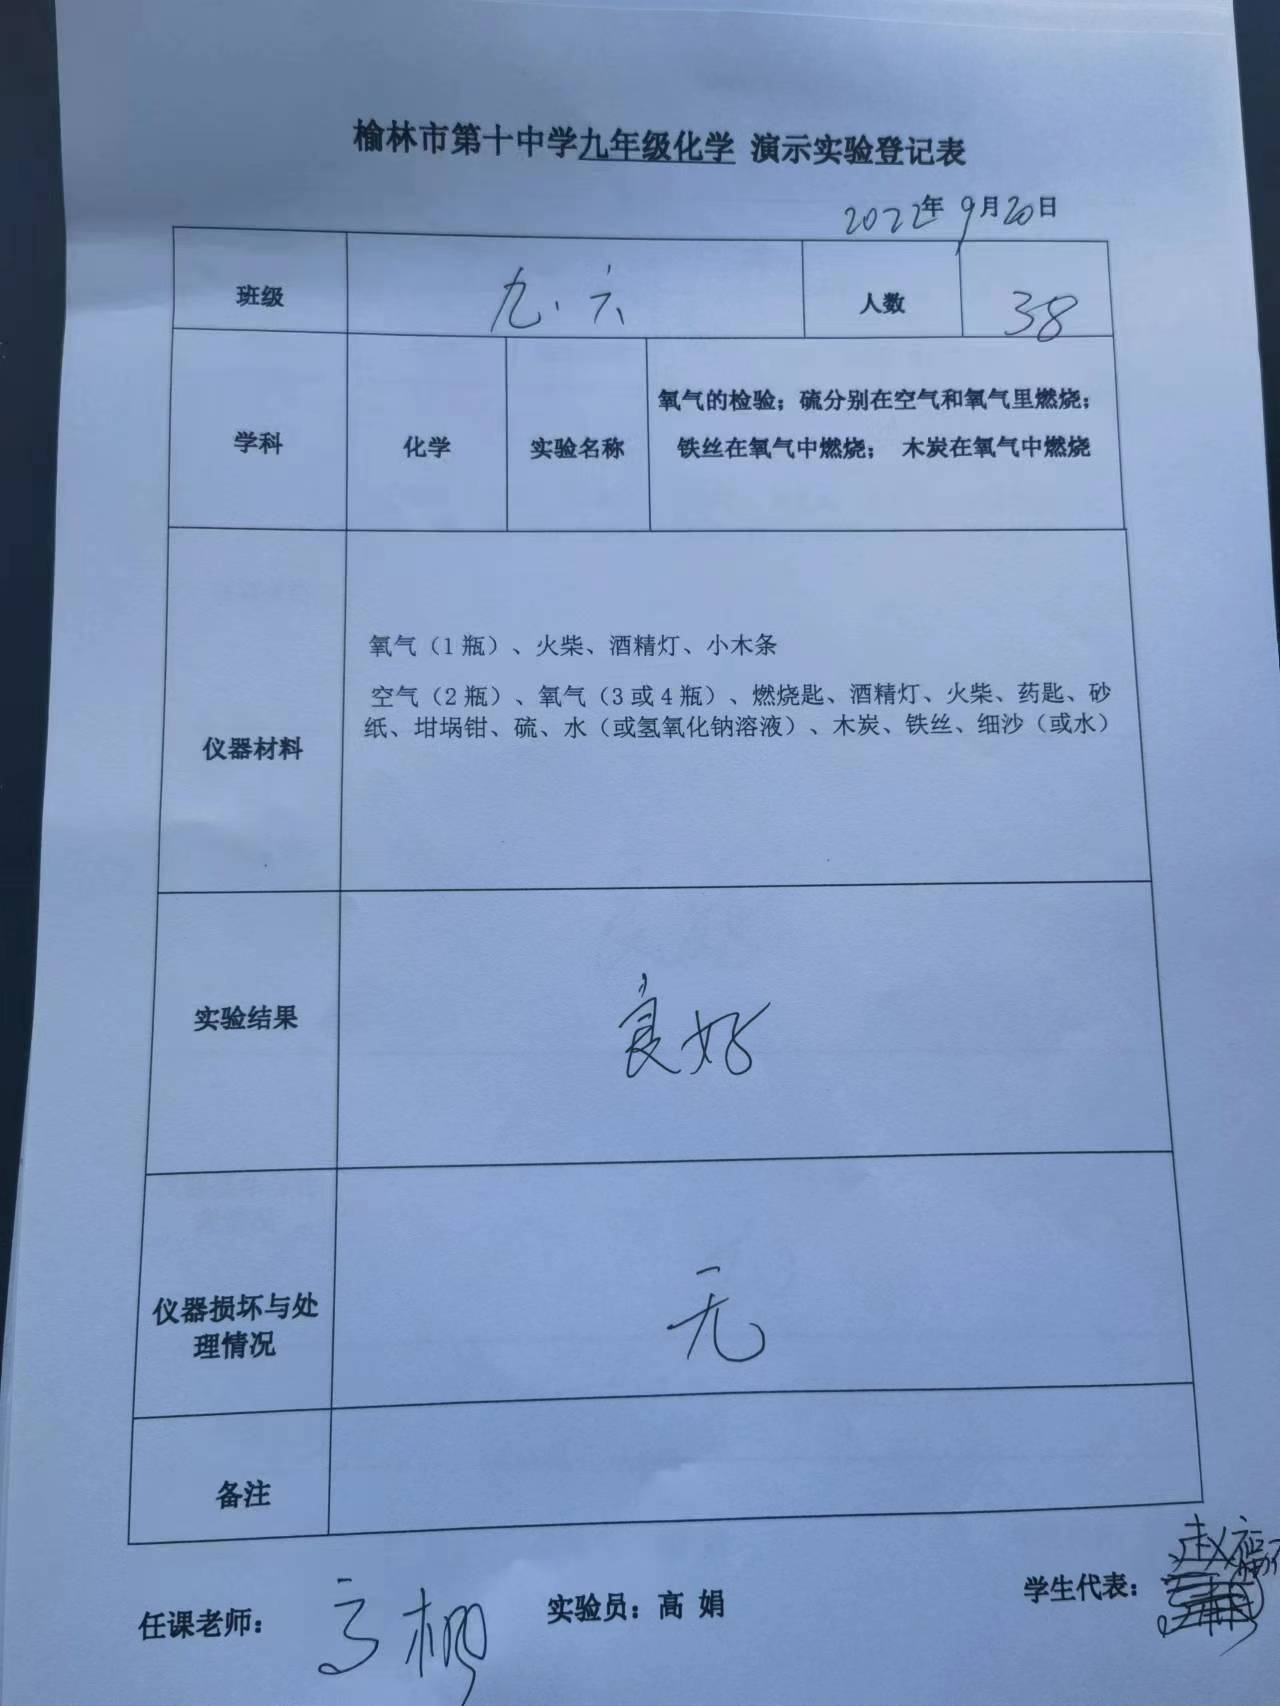 榆林市第十中学九年级化学 演示实验登记表
2022年9月20日
班级 九.六 人数 38
学科 化学 实验名称 氧气的检验；硫分别在空气和氧气里燃烧；
铁丝在氧气中燃烧； 木炭在氧气中燃烧
仪器材料
氧气（1瓶）、火柴、酒精灯、小木条
空气（2瓶）、氧气（3或4瓶）、燃烧匙、酒精灯、火柴、药匙、砂
纸、坩埚钳、硫、水（或氢氧化钠溶液）、木炭、铁丝、细沙（或水）
实验结果 良好
仪器损坏与处
理情况
无
备注
任课老师： 实验员：高 娟 学生代表：赵